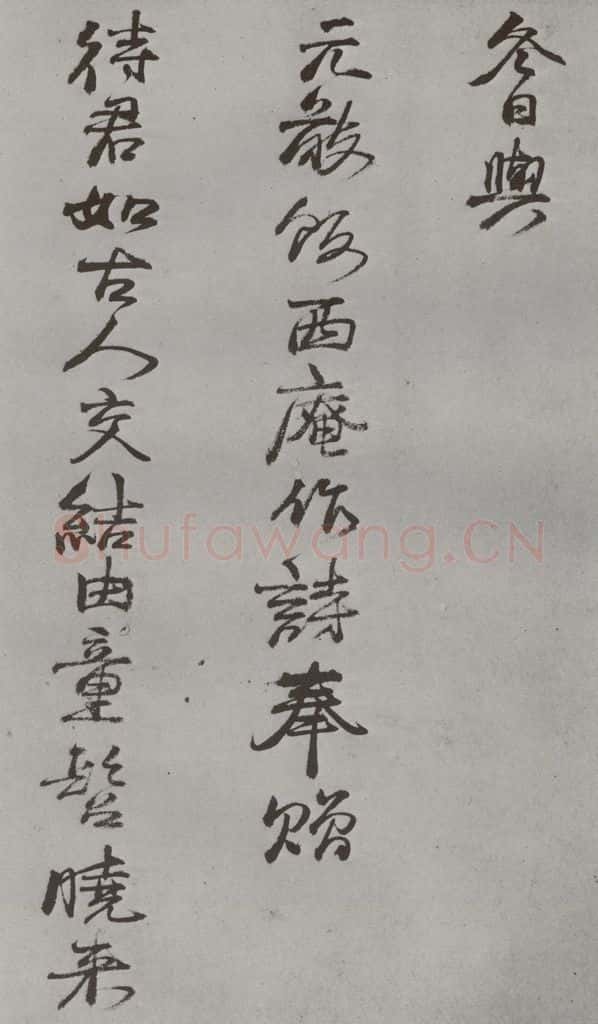 冬日與
元嚴飯西庵作詩奉贈
待君如古人交結由童髫曉來
Shufawang.CN